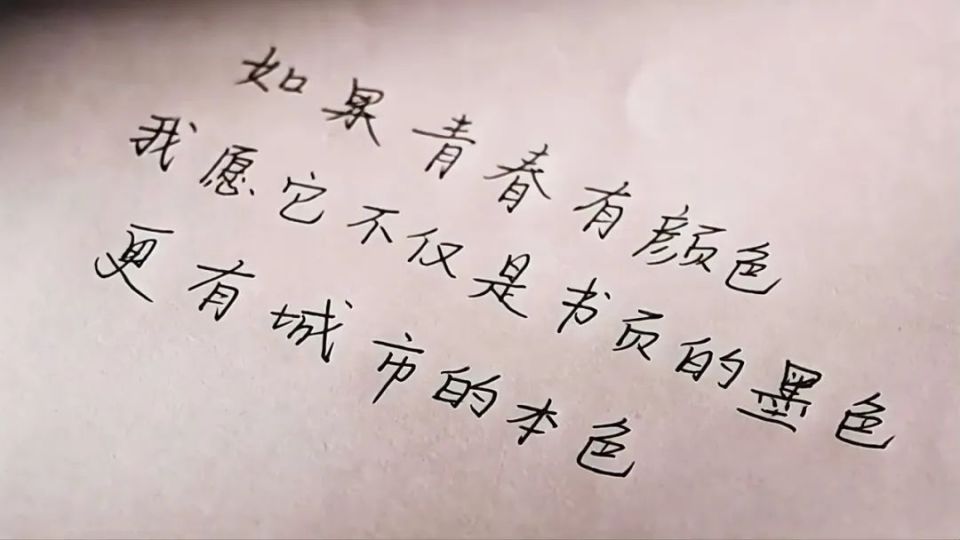 如果青春有颜色
我愿它不仅是书页的墨色
更有城市的本色